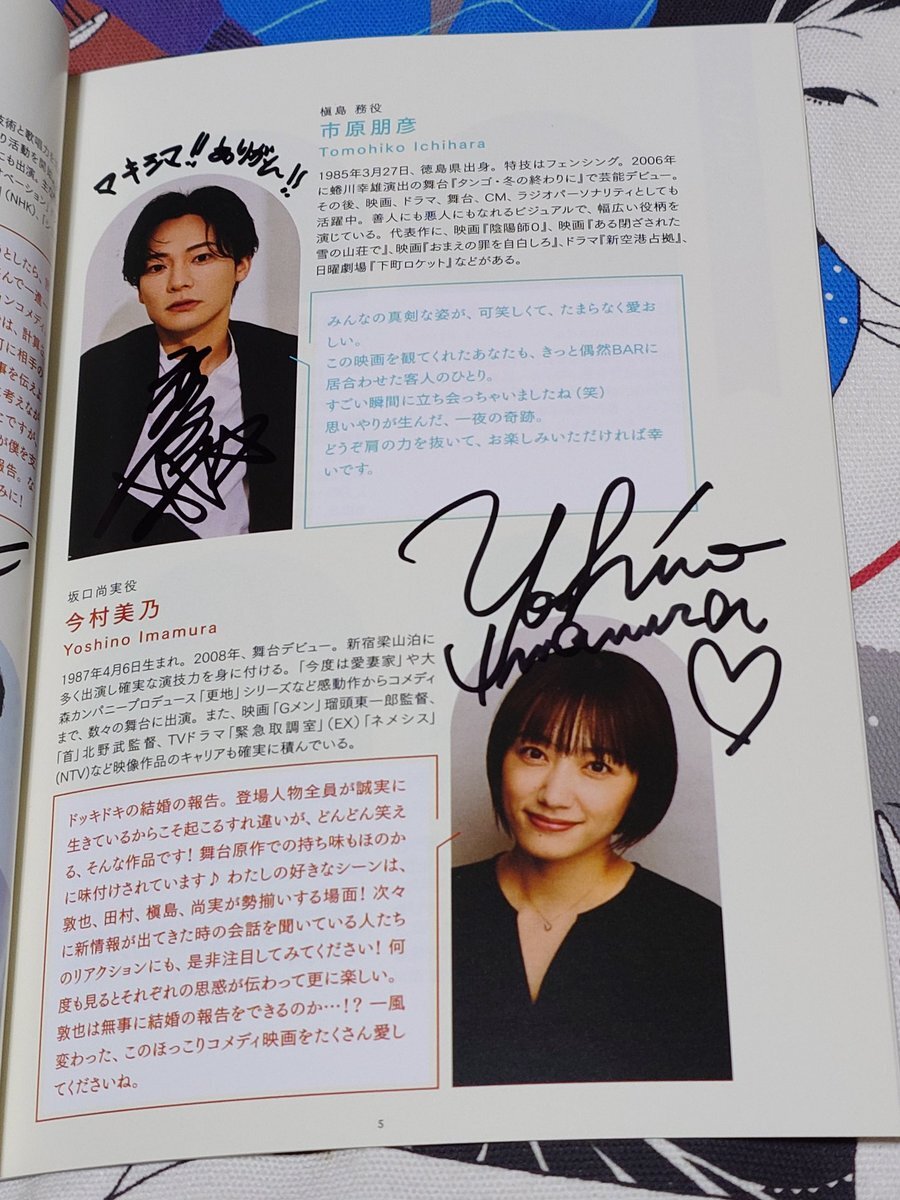 技術と歌唱力を
り活動を開
にも出演。
ベーション
(NHK)、「シ
槇島 務役
市原朋彦
Tomohiko Ichihara
1985年3月27日、徳島県出身。特技はフェンシング。2006年
に蜷川幸雄演出の舞台『タンゴ・冬の終わりに』で芸能デビュー。
その後、映画、ドラマ、舞台、CM、ラジオパーソナリティとしても
活躍中。善人にも悪人にもなれるビジュアルで、幅広い役柄を
演じている。代表作に、映画『陰陽師0』、映画『ある閉ざされた
雪の山荘で』、映画『おまえの罪を自白しろ』、ドラマ『新空港占拠』、
日曜劇場『下町ロケット』などがある。
マキシマ!!ありがとう!!
みんなの真剣な姿が、可笑しくて、たまらなく愛お
しい。
この映画を観てくれたあなたも、きっと偶然BARに
居合わせた客人のひとり。
すごい瞬間に立ち会っちゃいましたね(笑)
思いやりが生んだ、一夜の奇跡。
どうぞ肩の力を抜いて、お楽しみいただければ幸
いです。
Yoshino
Imamura
坂口尚実役
今村美乃
Yoshino Imamura
1987年4月6日生まれ。2008年、舞台デビュー。新宿梁山泊に
多く出演し確実な演技力を身に付ける。「今度は愛妻家」や大
森カンパニープロデュース「更地」シリーズなど感動作からコメディ
まで、数々の舞台に出演。また、映画「Gメン」瑠頭東一郎監督、
「首」北野武監督、TVドラマ「緊急取調室」(EX)「ネメシス」
(NTV)など映像作品のキャリアも確実に積んでいる。
ドッキドキの結婚の報告。登場人物全員が誠実に
生きているからこそ起こるすれ違いが、どんどん笑え
る、そんな作品です! 舞台原作での持ち味もほのか
に味付けされています♪ わたしの好きなシーンは、
敦也、田村、槇島、尚実が勢揃いする場面! 次々
に新情報が出てきた時の会話を聞いている人たち
のリアクションにも、是非注目してみてください! 何
度も見るとそれぞれの思惑が伝わって更に楽しい。
敦也は無事に結婚の報告をできるのか…!? 一風
変わった、このほっこりコメディ映画をたくさん愛し
てくださいね。
5